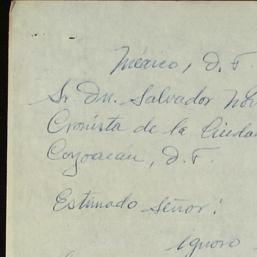 México, D. F.
Sr. Dn. Salvador Nov
Cronista de la Ciudad
Coyoacán, D. F.
Estimado Señor:
Ignoro